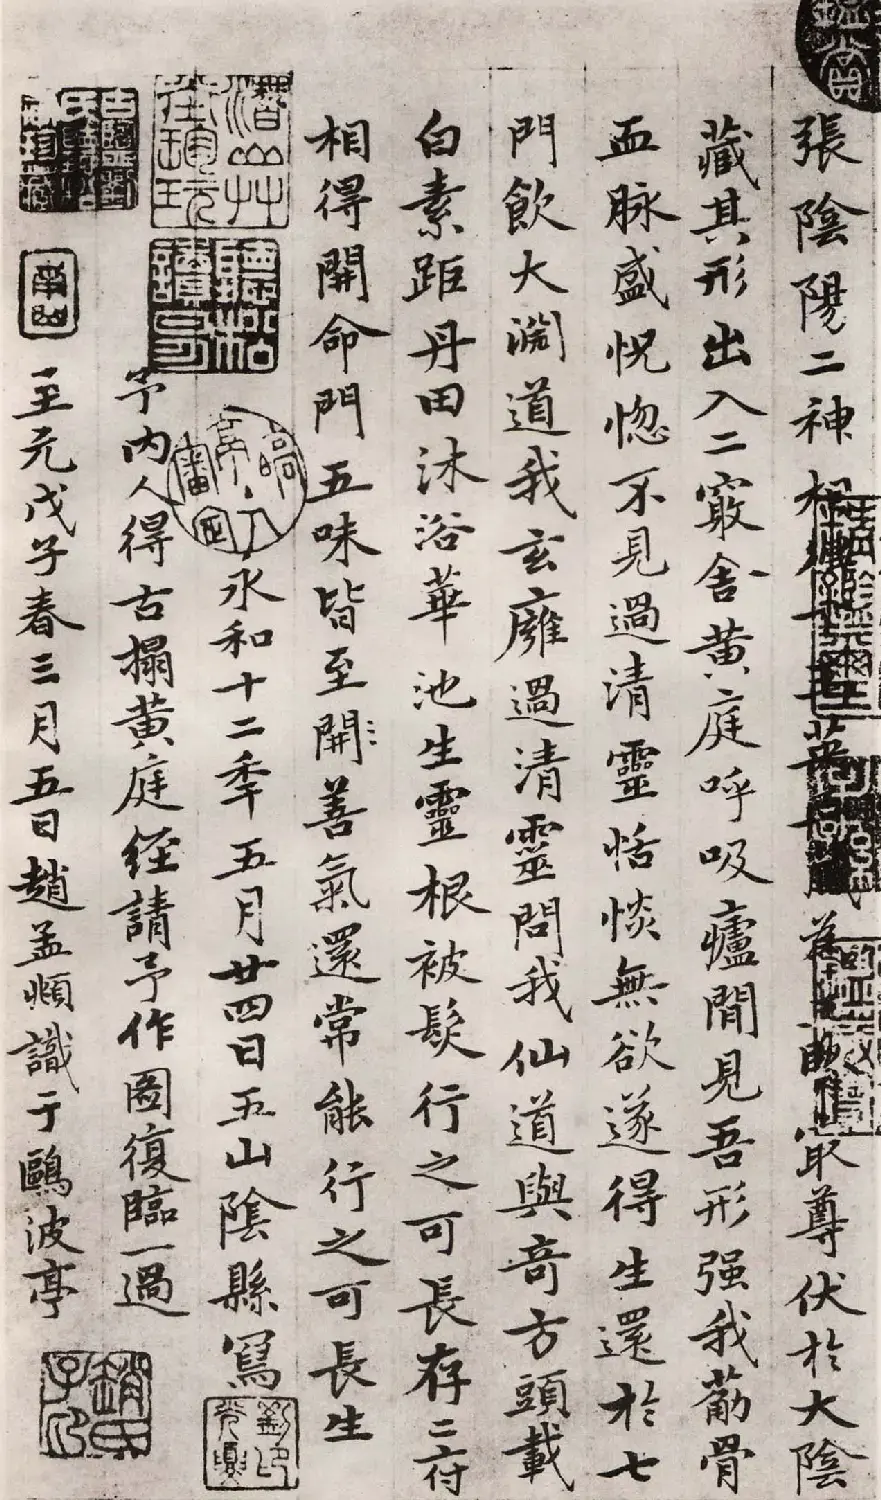 張陰陽二神相 㝡尊伏於大陰
藏其形出入二竅舎黄庭呼吸廬間見吾形强我荕骨
血脉盛怳惚不見過清靈恬惔無欲遂得生還於七
門飲大淵道我玄癰過清靈問我仙道與竒方頭載
白素距丹田沐浴華池生靈根被髮行之可長存二府
相得開命門五味皆至開善氣還常能行之可長生
永和十二季五月廿四日五山陰縣寫
予内人得古搨黄庭経請予作圖復臨一過
至元戊子春三月五日趙孟頫識于鷗波亭
趙氏子昂